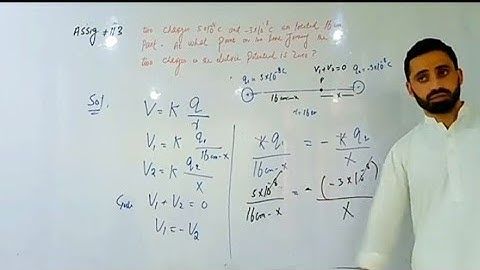 Assig # 3
two charges 5x10⁻⁸C and -3x10⁻⁸C are located 16cm
Part. At what point on the line joining the
two charges is the electric Potential is Zero?
q₁ = 5x10⁻⁸C
V₁+V₂=0
q₂ = -3x10⁻⁸C
P
+
-
16cm-x
x
r=16cm
Sol.
V = K q/r
V₁ = K q₁/16cm-x
V₂ = K q₂/x
V₁ + V₂ = 0
V₁ = -V₂
K q₁/16cm-x = - K q₂/x
5x10⁻⁸/16cm-x = - (-3x10⁻⁸)/x